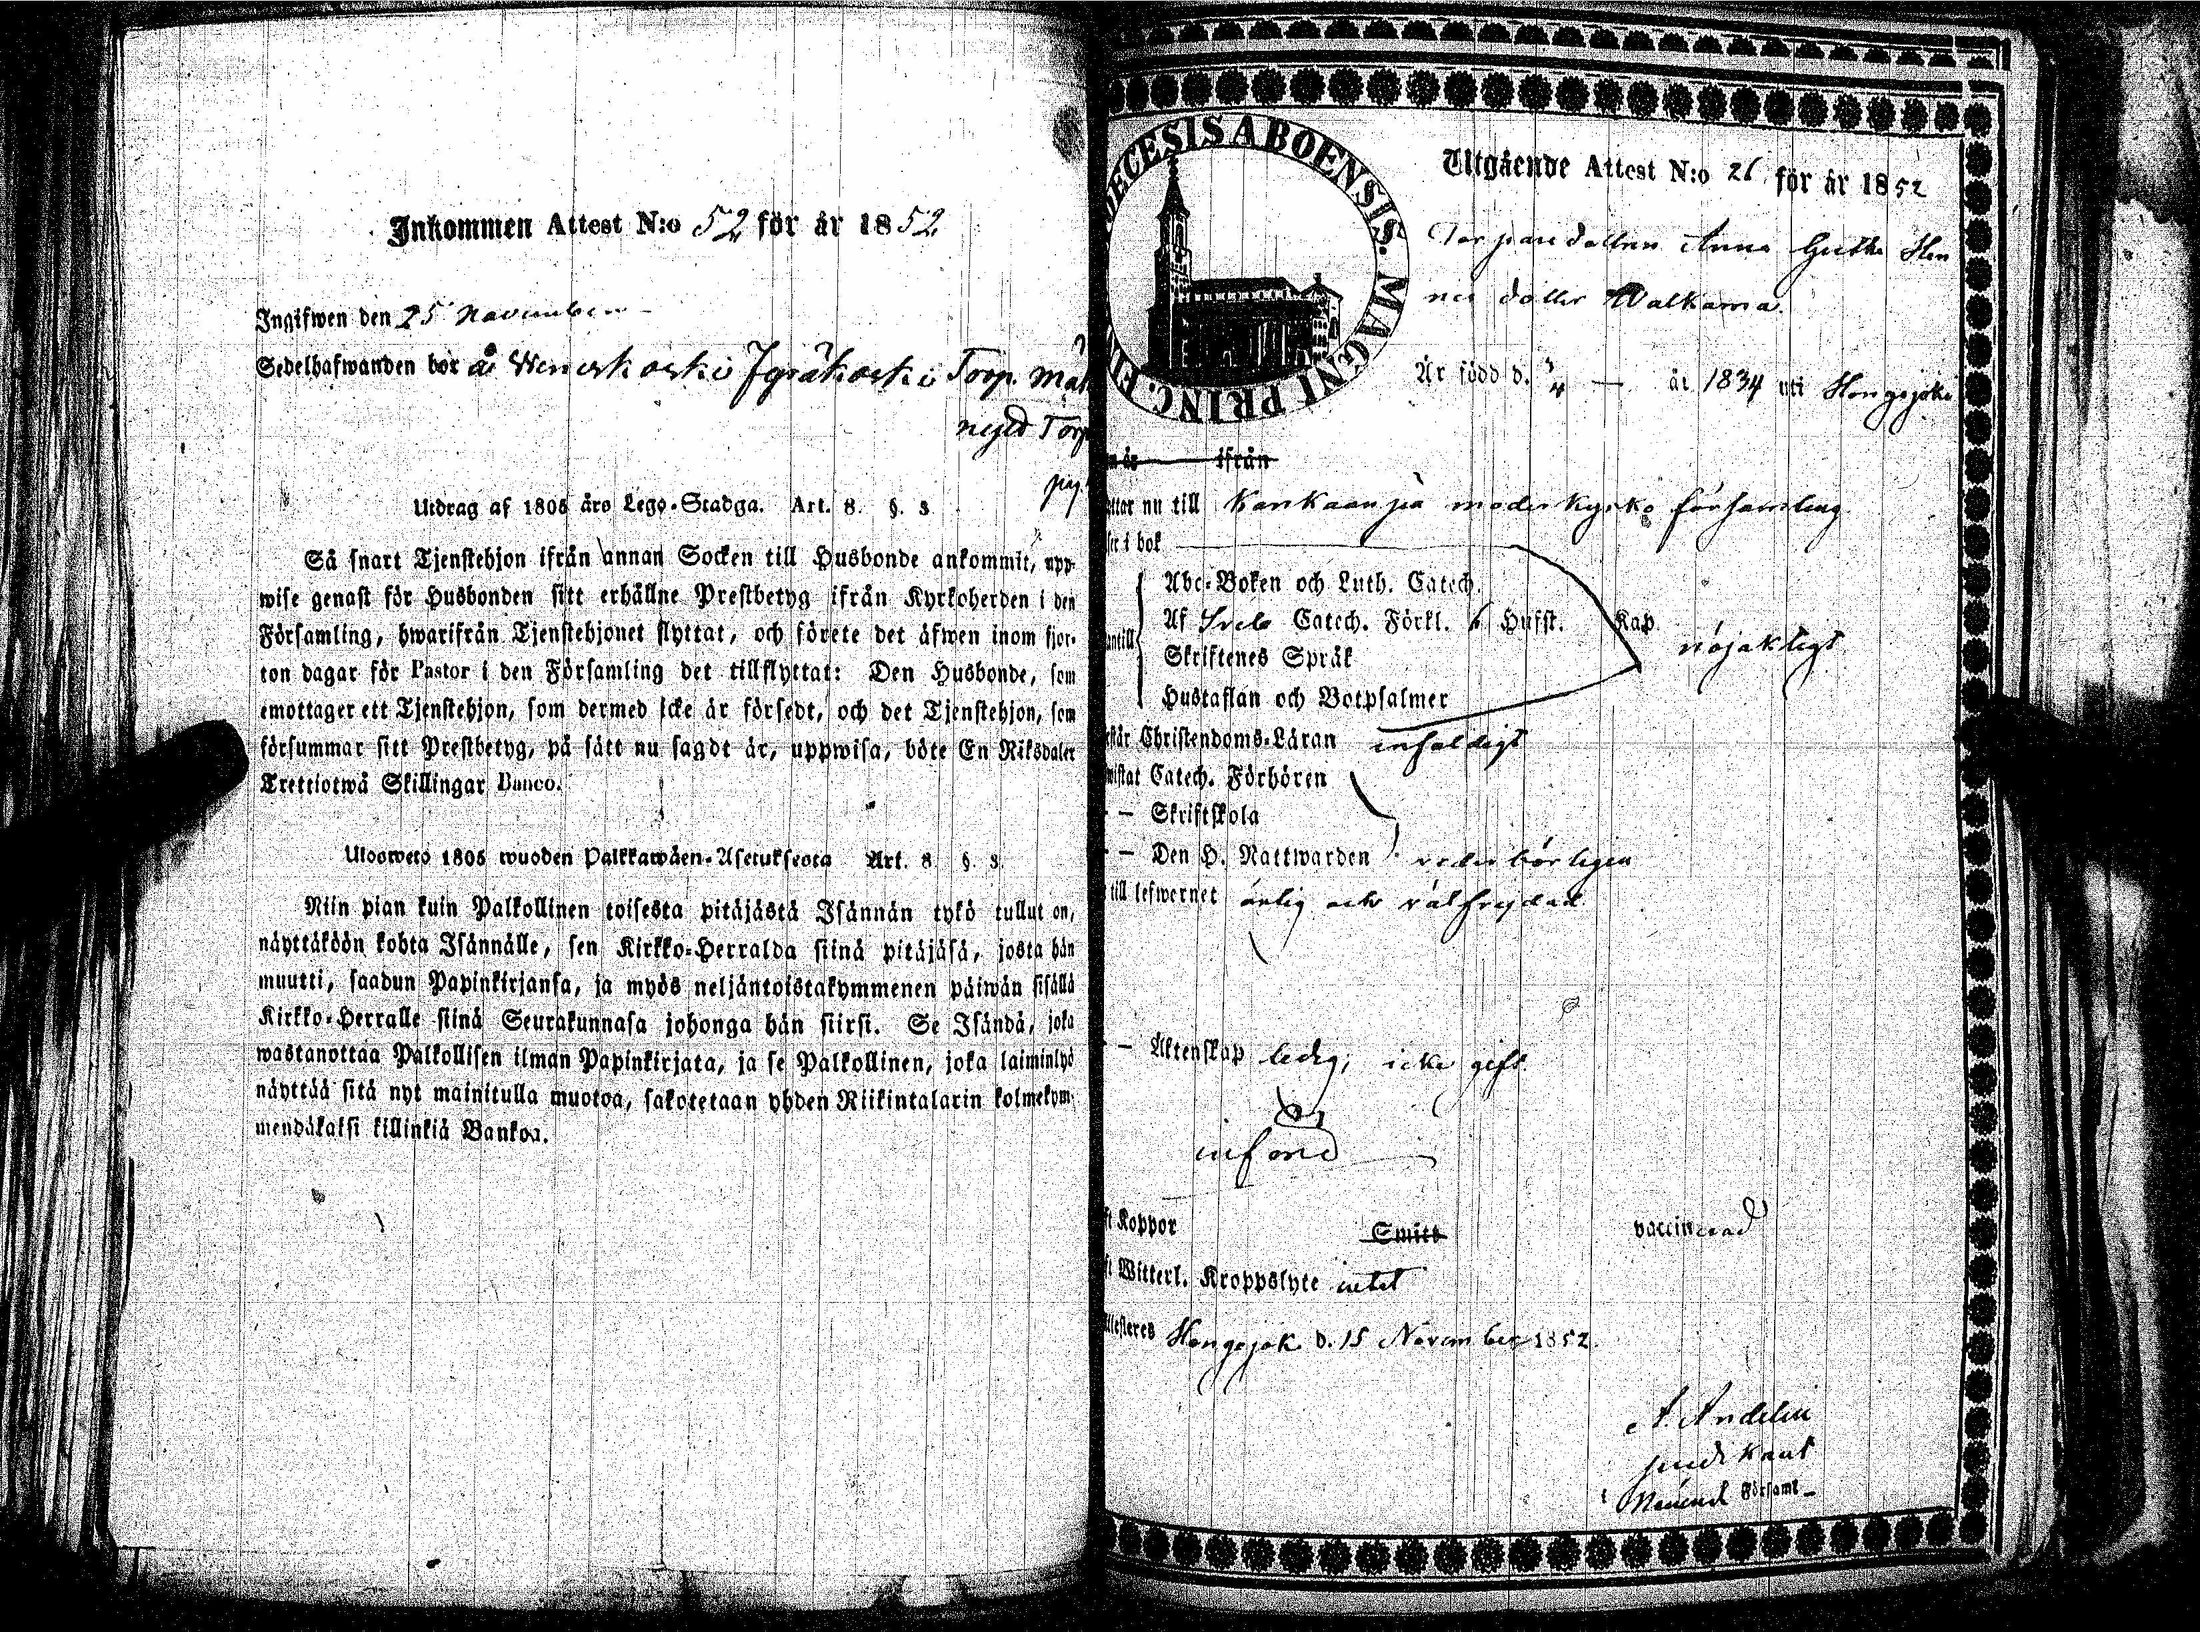 Inkommen Attest N:o 52 för år 1852
Ingifwen den 25 November
Sedelhafwanden bor å Weneskoski Jyräkoski Torp.
Torp
pag.
Utdrag af 1805 års Lego-Stadga. Art. 8. §. 3.
Så snart Tjenstehjon ifrån annan Socken till Husbonde ankommit, upp-
wise genast för Husbonden sitt erhållne Prestbetyg ifrån Kyrkoherden i den
Församling, hwarifrån Tjenstehjonet flyttat, och förete det äfwen inom fjor-
ton dagar för Pastor i den Församling det tillflyttat: Den Husbonde, som
emottager ett Tjenstehjon, som dermed icke är försedt, och det Tjenstehjon, som
försummar sitt Prestbetyg, på sätt nu sagdt är, uppwisa, böte En Riksdaler
Trettiotwå Skillingar Banco.
Ulosweto 1805 wuoden Palkkawäen-Asetuksesta Art. 8 §. 3.
Niin pian kuin Palkollinen toisesta pitäjästä Isännän tykö tullut on,
näyttäköön kohta Isännälle, sen Kirkko-Herralda siinä pitäjäsä, josta hän
muutti, saadun Papinkirjansa, ja myös neljäntoistakymmenen päiwän sisällä
Kirkko-Herralle siinä Seurakunnasa johonga hän siirsi. Se Isändä, joka
wastanottaa Palkollisen ilman Papinkirjata, ja se Palkollinen, joka laiminlyö
näyttää sitä nyt mainitulla muotoa, sakotetaan yhden Riikintalarin kolmekym-
mendäkaksi killinkiä Bankoa.
DIECESIS ABOENSIS. MAGNI PRINC. FI
Utgående Attest N:o 26 för år 1852
Torparedottren Anna Greta Hen
rics dotter Walkama.
Är född d. 3/4 — år 1834 uti Hongojoki
n år ifrån
ttar nu till Kankaanpä moderkyrko församling
ser i bok
antill
Abc-Boken och Luth. Catech.
Af Sveb Catech. Förkl. 6 Hufst. Kap.
Skriftenes Språk
nöjaktigt
Hustaflan och Botpsalmer
står Christendoms-Läran enfaldigt
wistat Catech. Förhören
— Skriftskola
— Den H. Nattwarden vederbörligen
till lefwernet ärlig och välfrejdad.
— Äktenskap ledig, icke gift.
införd
ft Koppor Smitt vaccinerad
ft Witterl. Kroppslyte intet
Attesteres Hongojok. d. 15 November 1852.
A. Andelin
predikant
Församl